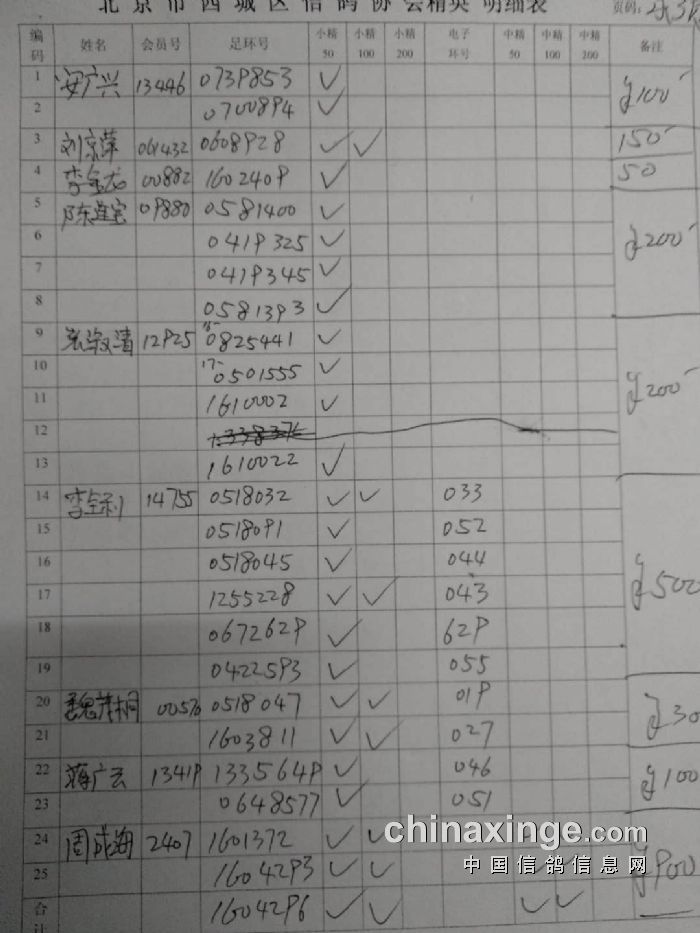 北京市西城区信鸽协会精英 明细表
页码:
编码 姓名 会员号 足环号 小精50 小精100 小精200 电子环号 中精50 中精100 中精200 备注
1 安广兴 13446 0739853 ✓ 100
2 0700894 ✓
3 刘京萍 061432 0608928 ✓ ✓ 150
4 李金龙 00882 1602409 ✓ 50
5 陈连宝 09880 0581400 ✓ 200
6 0419325 ✓
7 0419345 ✓
8 0581393 ✓
9 张淑清 12925 0825441 ✓ 200
10 17- 0501555 ✓
11 1610002 ✓
12
13 1610022 ✓
14 李全利 14755 0518032 ✓ ✓ 033 500
15 0518091 ✓ 052
16 0518045 ✓ 044
17 1255228 ✓ ✓ 043
18 0672629 ✓ 629
19 0422593 ✓ 055
20 魏茂桐 00576 0518047 ✓ ✓ 019 30
21 1603811 ✓ ✓ 027
22 蒋广云 13419 1335649 ✓ 046 100
23 0648577 ✓ 051
24 周成海 2407 1601372 ✓ ✓ 900
25 1604293 ✓ ✓
合计 1604296 ✓ ✓ ✓ ✓
chinaxinge.com
中国信鸽信息网